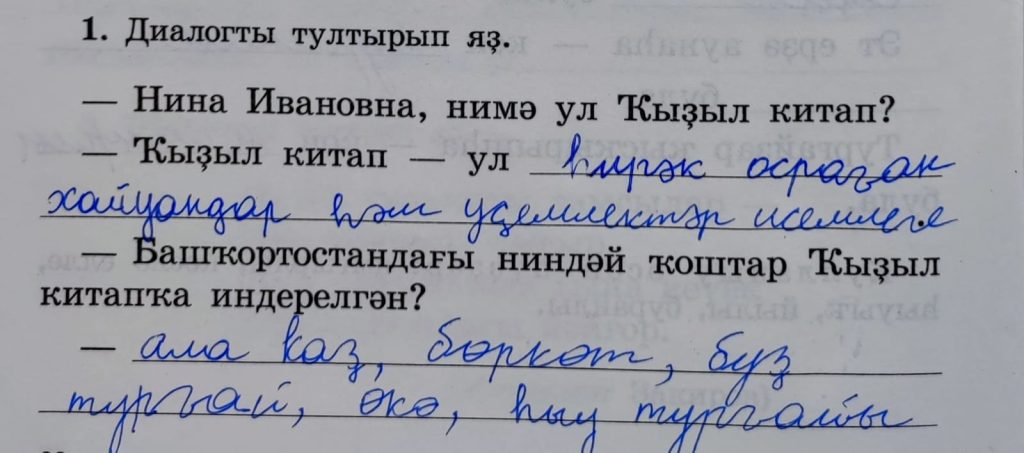 1. Диалогты тултырып яҙ.
— Нина Ивановна, нимә ул Ҡыҙыл китап?
— Ҡыҙыл китап — ул һирәк осраған
хайуандар һәм үҫемлектәр исемлеге
— Башҡортостандағы ниндәй ҡоштар Ҡыҙыл
китапҡа индерелгән?
— ала ҡаҙ, бөркөт, буҙ
турғай, өкө, һыу турғайы